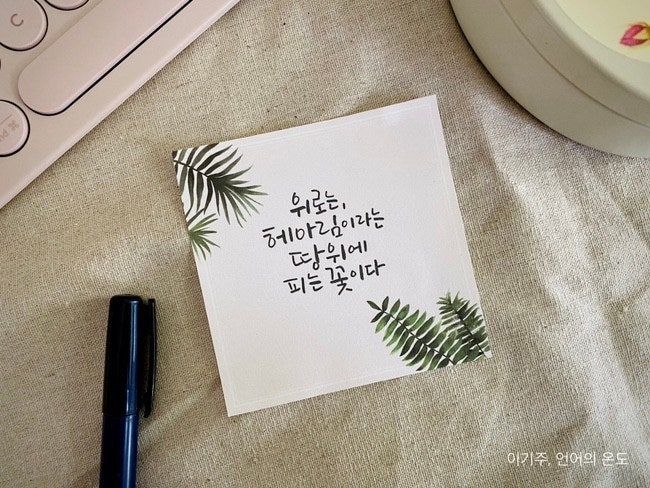 위로는,
헤아림이라는
땅 위에
피는 꽃이다
이기주, 언어의 온도
C